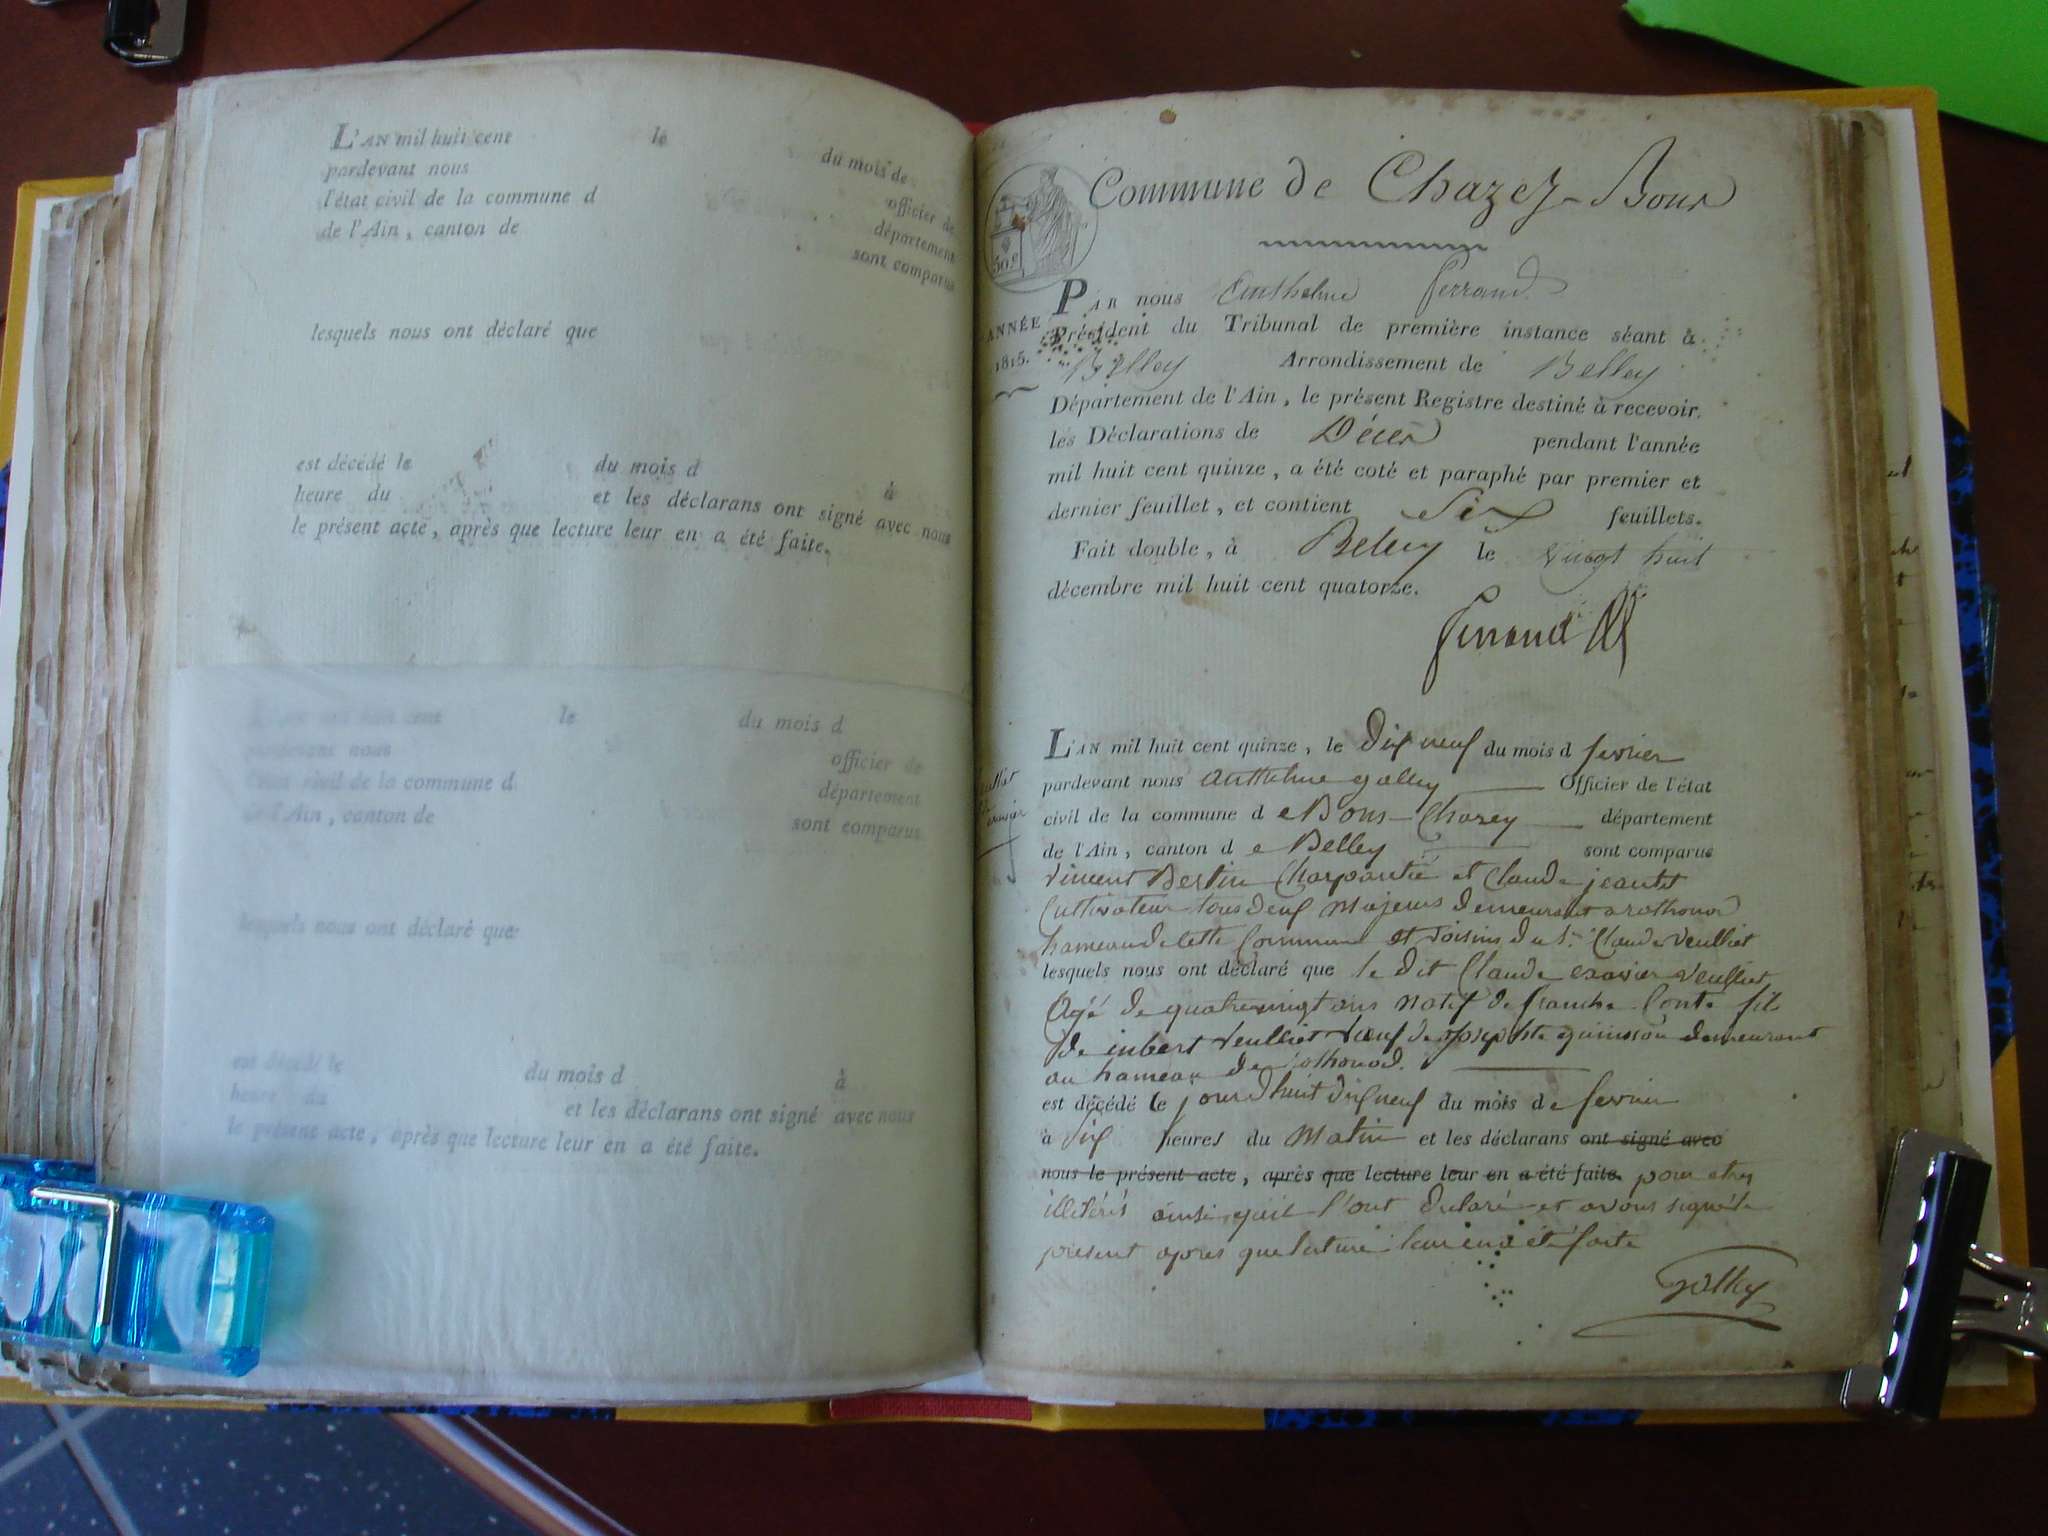 L'AN mil huit cent le du mois de
pardevant nous officier de
l'état civil de la commune d département
de l'Ain, canton de sont comparus
lesquels nous ont déclaré que
est décédé le du mois d à
heure du et les déclarans ont signé avec nous
le présent acte, après que lecture leur en a été faite.
L'AN mil huit cent le du mois d
pardevant nous officier de
l'état civil de la commune d département
de l'Ain, canton de sont comparus
lesquels nous ont déclaré que
est décédé le du mois d à
heure du et les déclarans ont signé avec nous
le présent acte, après que lecture leur en a été faite.
Commune de Chazey-Bons
50.c
ANNÉE
1815.
PAR nous Anthelme Ferrand
Président du Tribunal de première instance séant à
Belley Arrondissement de Belley
Département de l'Ain, le présent Registre destiné à recevoir
les Déclarations de Décès pendant l'année
mil huit cent quinze, a été coté et paraphé par premier et
dernier feuillet, et contient Six feuillets.
Fait double, à Belley le vingt huit
décembre mil huit cent quatorze.
Ferrand
L'AN mil huit cent quinze, le Dix neuf du mois d fevrier
pardevant nous anthelme galley Officier de l'état
civil de la commune d e Bons Chazey département
de l'Ain, canton d e Belley sont comparus
Vincent Bertin Charpantié et Claude jeantet
Cultivateur tous deux Majeurs demeurant a rothonod
hameau de cette Commune et voisins du Sr. Claude Veulliet
lesquels nous ont déclaré que le dit Claude exavier Veulliet
Agé de quatrevingt ans natif de franche Conte fils
de inbert Veulliet veuf de Josephte guinson demeurant
au hameau de rothonod.
est décédé le jourd'huit dix neuf du mois d e fevrier
à six heures du Matin et les déclarans ont signé avec
nous le présent acte, après que lecture leur en a été faite. pour etres
illiterés ainsi quil l'ont déclaré et avons signé le
présent apres que lecture leur en a été faite
galley